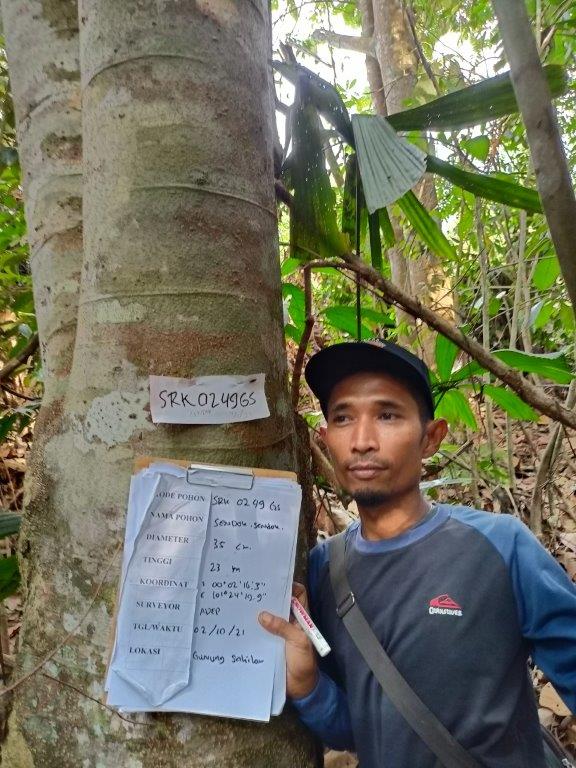 SRK 0249 GS
KODE POHON SRK 0249 GS
NAMA POHON
DIAMETER 35 cm.
TINGGI 23 m
KOORDINAT S 00°02'16.3"
E 101°24'19.9"
SURVEYOR ADEP
TGL/WAKTU 02/10/21
LOKASI Gunung Sahilan
SNOWMAN